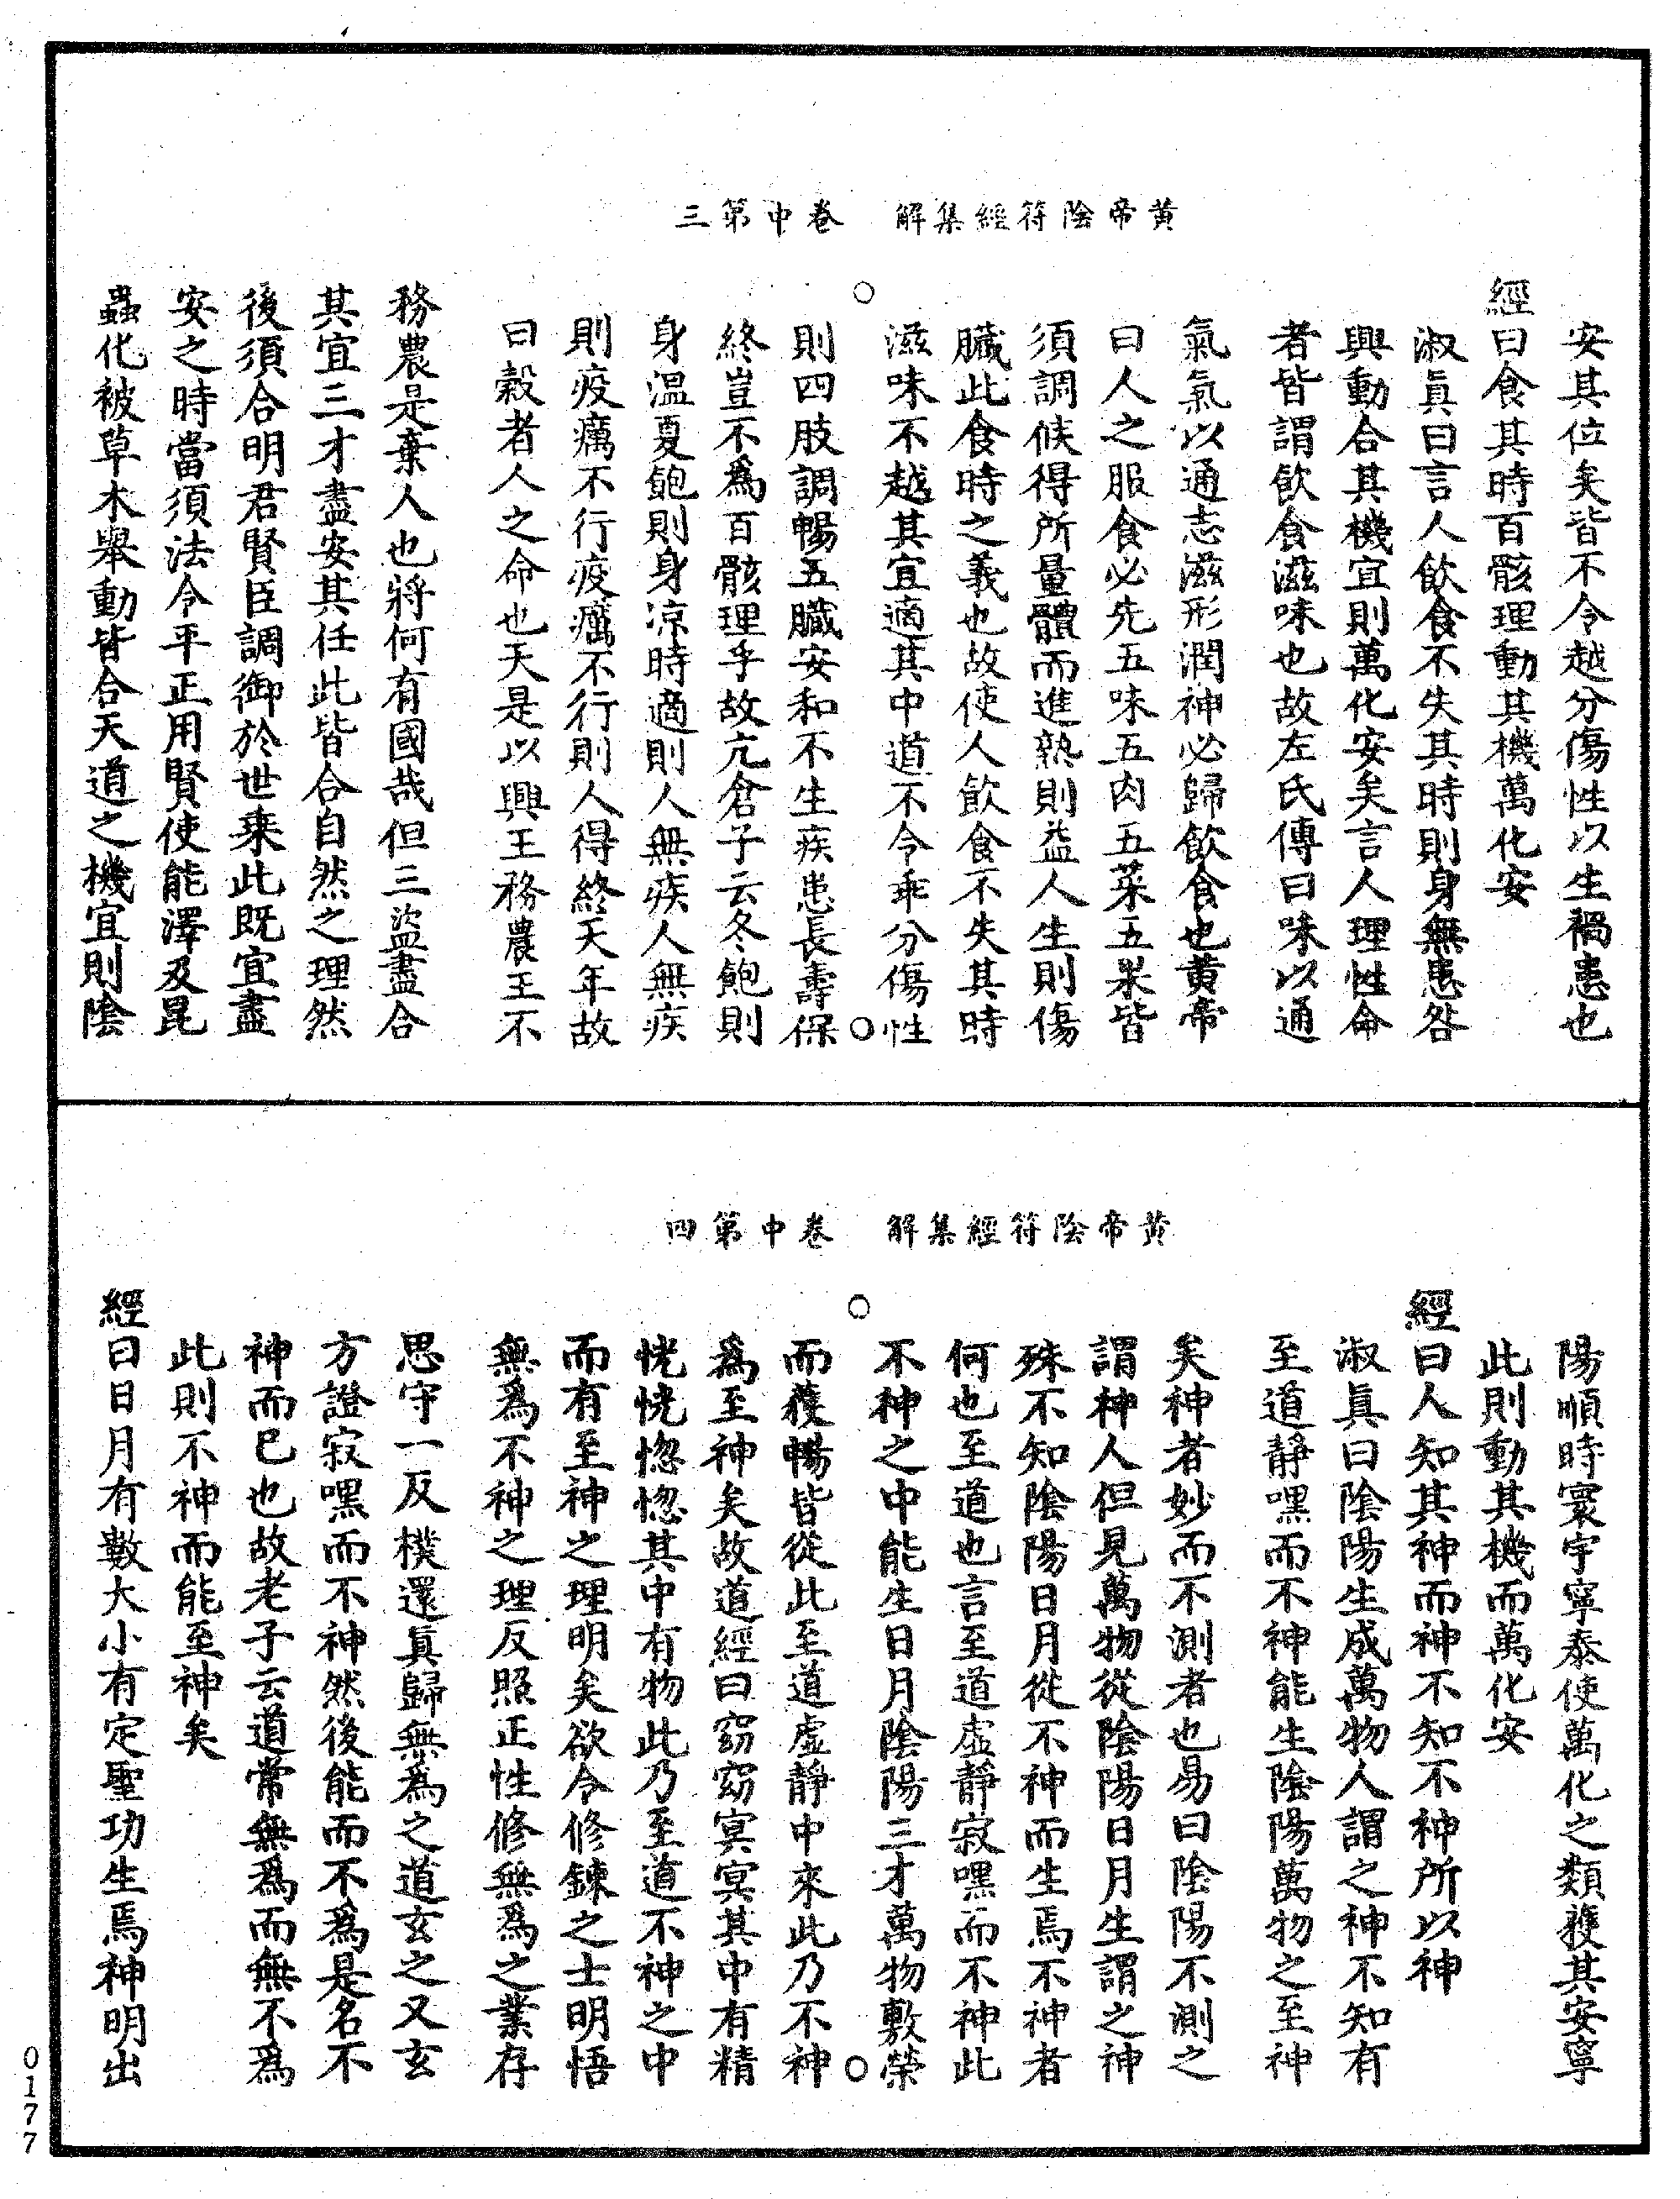 黄帝陰符經集解　卷中第三
安其位矣皆不令越分傷性以生禍患也
經曰食其時百骸理動其機萬化安
淑眞曰言人飲食不失其時則身無患咎
興動合其機宜則萬化安矣言人理性命
者皆謂飲食滋味也故左氏傳曰味以通
氣氣以通志滋形潤神必歸飲食也黄帝
曰人之服食必先五味五肉五菜五果皆
須調候得所量體而進熟則益人生則傷
臟此食時之義也故使人飲食不失其時
滋味不越其宜適其中道不令乖分傷性
則四肢調暢五臟安和不生疾患長壽保
終豈不爲百骸理乎故亢倉子云冬飽則
身溫夏飽則身凉時適則人無疾人無疾
則疫癘不行疫癘不行則人得終天年故
曰穀者人之命也天是以興王務農王不
務農是棄人也將何有國哉但三盜盡合
其宜三才盡安其任此皆合自然之理然
後須合明君賢臣調御於世乘此既宜盡
安之時當須法令平正用賢使能澤及昆
蟲化被草木舉動皆合天道之機宜則陰
黄帝陰符經集解　卷中第四
陽順時寰宇寧泰使萬化之類獲其安寧
此則動其機而萬化安
經曰人知其神而神不知不神所以神
淑眞曰陰陽生成萬物人謂之神不知有
至道靜嘿而不神能生陰陽萬物之至神
矣神者妙而不測者也易曰陰陽不測之
謂神人但見萬物從陰陽日月生謂之神
殊不知陰陽日月從不神而生焉不神者
何也至道也言至道虛靜寂嘿而不神此
不神之中能生日月陰陽三才萬物敷榮
而獲暢皆從此至道虛靜中來此乃不神
爲至神矣故道經曰窈窈冥冥其中有精
恍恍惚惚其中有物此乃至道不神之中
而有至神之理明矣欲令修鍊之士明悟
無爲不神之理反照正性修無爲之業存
思守一反樸還眞歸無爲之道玄之又玄
方證寂嘿而不神然後能而不爲是名不
神而已也故老子云道常無爲而無不爲
此則不神而能至神矣
經曰日月有數大小有定聖功生焉神明出
0177